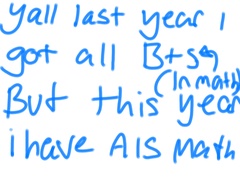 Yall last year I
got all B+s
(In math)
But this year
i have AIS Math